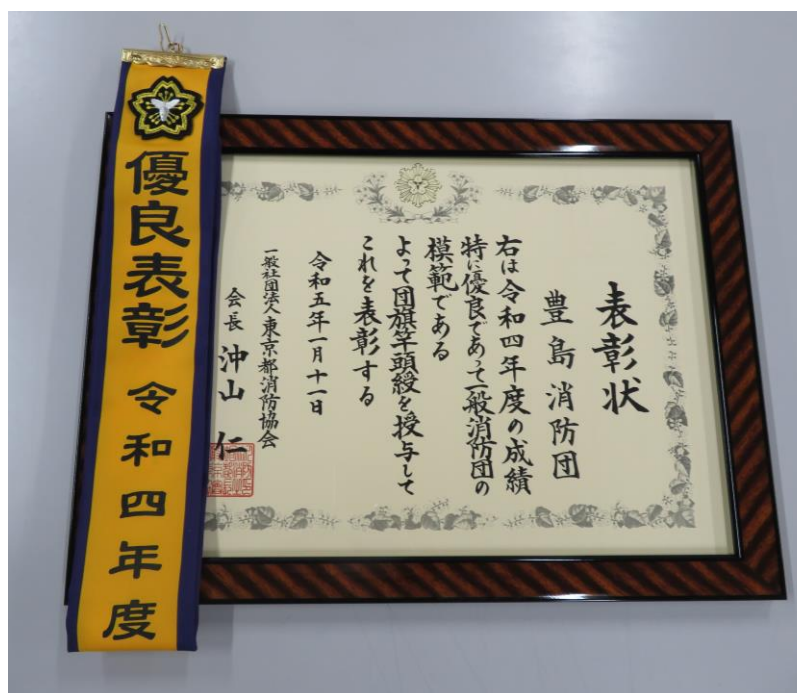 優良表彰 令和四年度
表彰状
豊島消防団
右は令和四年度の成績
特に優良であって一般消防団の
模範である
よって団旗竿頭綬を授与して
これを表彰する
令和五年一月十一日
一般社団法人東京都消防協会
会長 沖山 仁